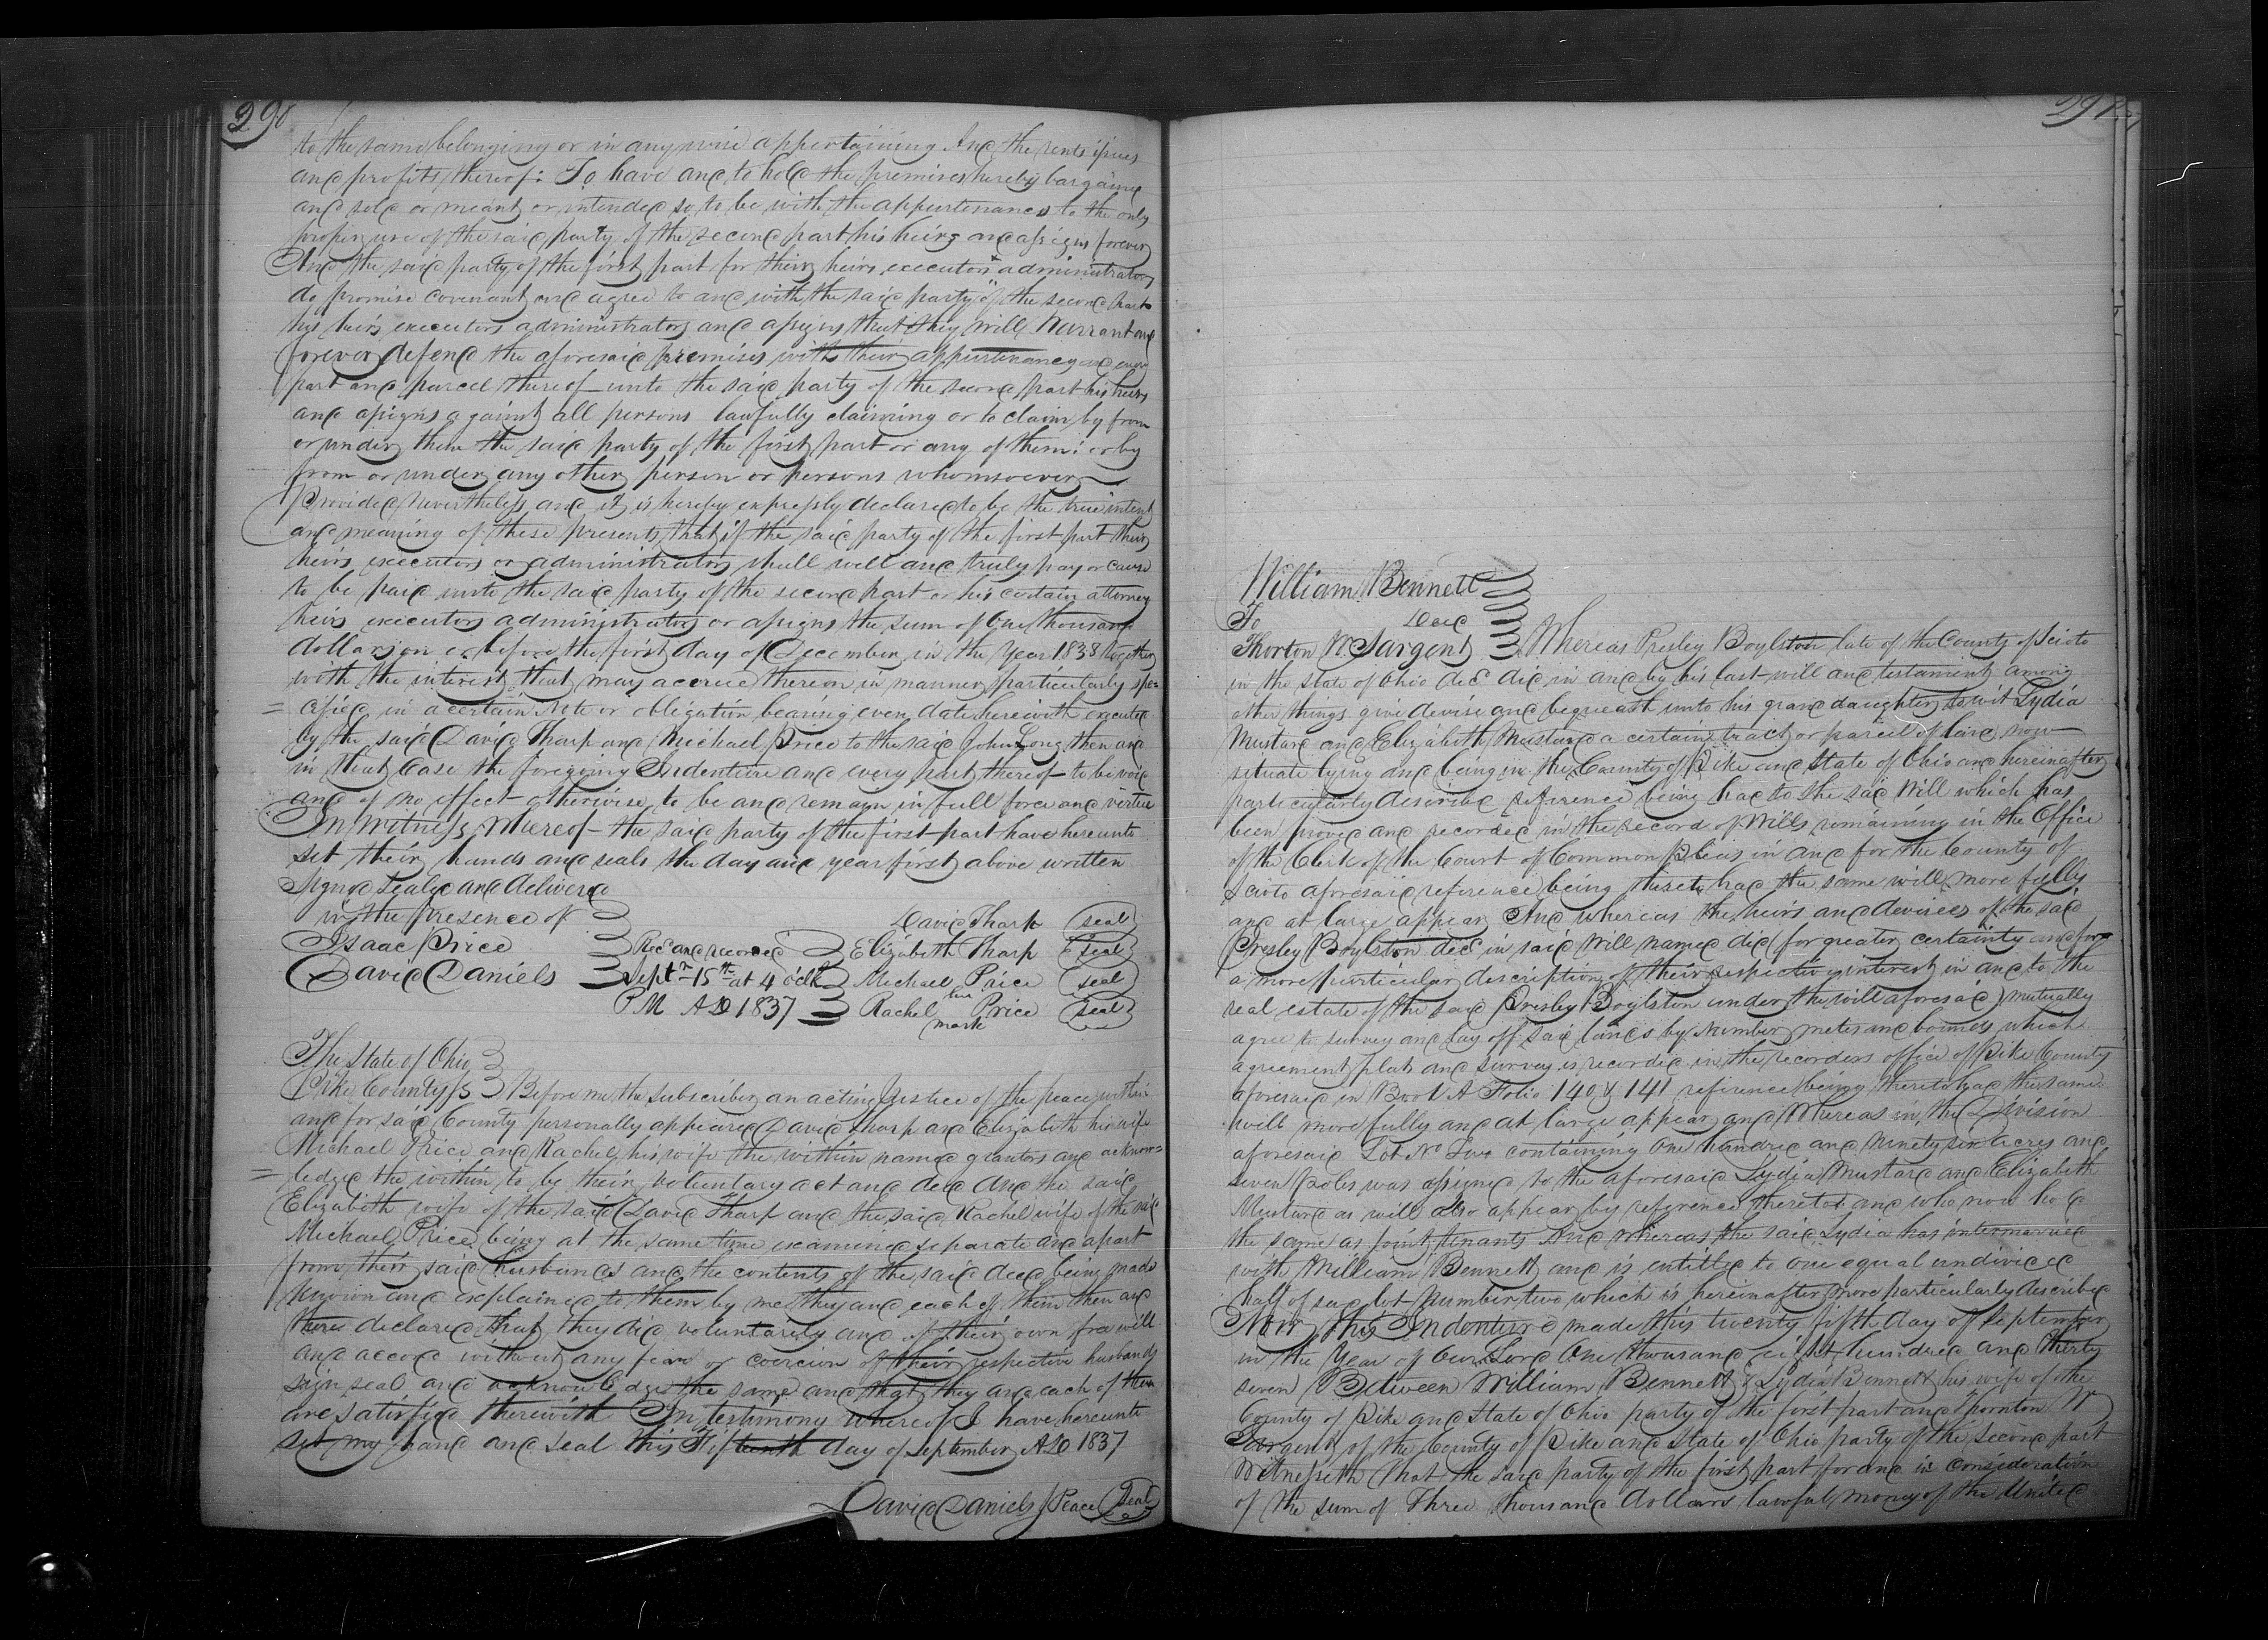 290
to the same belonging or in any wise appertaining And the rents issues
and profits thereof: To have and to hold the premises hereby bargained
and sold or meant or intended so to be with the appurtenances to the only
proper use of the said party of the second part his heirs and assigns forever
And the said party of the first part for their heirs executors & administrators
do promise covenant and agree to and with the said party of the second part
his heirs executors administrators and assigns that they will Warrant and
forever defend the aforesaid premises with their appurtenances and every
part and parcel thereof unto the said party of the second part his heirs
and assigns against all persons lawfully claiming or to claim by from
or under them the said party of the first part or any of them: or by
from or under any other person or persons whomsoever
Provided nevertheless and it is hereby expressly declared to be the true intent
and meaning of these presents that if the said party of the first part their
heirs executors or administrators shall well and truly pay or cause
to be paid unto the said party of the second part or his certain attorney
heirs executors administrators or assigns the sum of One thousand
dollars on or before the first day of December in the Year 1838 together
with the interest that may accrue thereon in manner particularly spe=
=cified in a certain Note or obligation bearing even date herewith executed
by the said David Tharp and Michael Price to the said John Long then and
in that case the foregoing Indenture and every part thereof to be void
and of no effect otherwise to be and remain in full force and virtue
In Witness Whereof the said party of the first part have hereunto
set their hands and seals the day and year first above written
Signed Sealed and delivered
in the presence of
David Tharp (seal)
Isaac Price Recd and recorded Elizabeth Tharp (seal)
David Daniels Septr 15th at 4 oclk Michael Price (seal)
P M AD 1837 Rachel her Price (seal)
mark
The State of Ohio
Pike County ss Before me the subscriber an acting Justice of the peace within
and for said County personally appeared David Tharp and Elizabeth his wife
Michael Price and Rachel his wife the within named grantors and acknow=
=ledged the within to be their voluntary act and deed And the said
Elizabeth wife of the said David Tharp and the said Rachel wife of the said
Michael Price being at the same time examined separate and apart
from their said husbands and the contents of the said deed being made
known and explained to them by me they and each of them then and
there declared that they did voluntarily and of their own free will
and accord without any fear or coercion of their respective husbands
sign seal and acknowledge the same and that they and each of them
are satisfied therewith In testimony whereof I have hereunto
set my hand and seal this Fifteenth day of September AD 1837
David Daniels J Peace (Seal)
291
William Bennett
To Deed
Thorton W Sargent Whereas Presley Boylston late of the County of Scioto
in the state of Ohio decd did in and by his last will and testament among
other things give devise and bequeath unto his grand daughters to wit Lydia
Mustard and Elizabeth Mustard a certain tract or parcel of land now
situate lying and being in the County of Pike and State of Ohio and hereinafter
particularly described reference being had to the said Will which has
been proved and recorded in the record of Wills remaining in the Office
of the Clerk of the Court of Common Pleas in and for the County of
Scioto aforesaid reference being thereto had the same will more fully
and at large appear And whereas the heirs and devisees of the said
Presley Boylston decd in said Will named did (for greater certainty and for
a more particular description of their respective interest in and to the
real estate of the said Presley Boylston under the will aforesaid) mutually
agree to survey and lay off said lands by Number metes and bounds which
agreement plat and survey is recorded in the recorders office of Pike County
aforesaid in Book A Folio 140 & 141 reference being thereto had the same
will more fully and at large appear and Whereas in the Division
aforesaid Lot No Two containing One hundred and Ninety six Acres and
seven Poles was assigned to the aforesaid Lydia Mustard and Elizabeth
Mustard as will also appear by reference thereto and who now hold
the same as joint tenants And whereas the said Lydia has intermarried
with William Bennett and is entitled to one equal undivided
half of said lot number two which is hereinafter more particularly described
Now this Indenture made this twenty fifth day of September
in the Year of Our Lord One thousand eight hundred and thirty
seven Between William Bennett & Lydia Bennett his wife of the
County of Pike and State of Ohio party of the first part and Thornton W
Sargent of the County of Pike and State of Ohio party of the second part
Witnesseth that the said party of the first part for and in consideration
of the sum of Three thousand dollars lawful money of the United